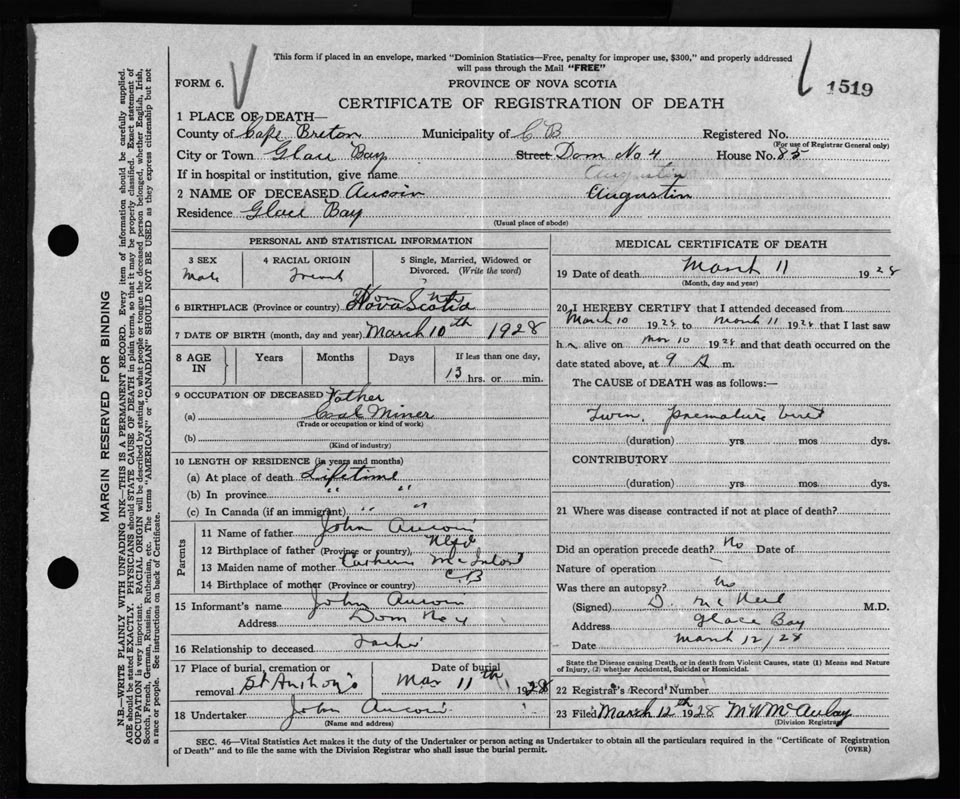 This form if placed in an envelope, marked "Dominion Statistics—Free, penalty for improper use, $300," and properly addressed
will pass through the Mail "FREE"
FORM 6.
PROVINCE OF NOVA SCOTIA
1519
CERTIFICATE OF REGISTRATION OF DEATH
1 PLACE OF DEATH—
County of Cape Breton Municipality of C B Registered No.
(For use of Registrar General only)
City or Town Glace Bay Street Dom No 4 House No. 85
If in hospital or institution, give name Augustin
2 NAME OF DECEASED Aucoin Augustin
Residence Glace Bay
(Usual place of abode)
PERSONAL AND STATISTICAL INFORMATION
3 SEX
Male
4 RACIAL ORIGIN
French
5 Single, Married, Widowed or
Divorced. (Write the word)
6 BIRTHPLACE (Province or country) Nova Scotia
7 DATE OF BIRTH (month, day and year) March 10th 1928
8 AGE IN
Years Months Days
If less than one day,
13 hrs. or min.
9 OCCUPATION OF DECEASED Father
(a) Coal Miner
(Trade or occupation or kind of work)
(b)
(Kind of industry)
10 LENGTH OF RESIDENCE (in years and months)
(a) At place of death Lifetime
(b) In province " "
(c) In Canada (if an immigrant) " "
Parents
11 Name of father John Aucoin
12 Birthplace of father (Province or country) Nfld
13 Maiden name of mother McIntosh
14 Birthplace of mother (Province or country) CB
15 Informant's name John Aucoin
Address Dom No 4
16 Relationship to deceased Father
17 Place of burial, cremation or
removal St Anthony's
Date of burial
Mar 11th 1928
18 Undertaker John Aucoin
(Name and address)
MEDICAL CERTIFICATE OF DEATH
19 Date of death March 11 1928
(Month, day and year)
20 I HEREBY CERTIFY that I attended deceased from
March 10 1928 to March 11 1928 that I last saw
h alive on Mar 10 1928 and that death occurred on the
date stated above, at 9 A m.
The CAUSE of DEATH was as follows:—
Twin, premature birth
(duration) yrs mos dys.
CONTRIBUTORY
(duration) yrs. mos dys.
21 Where was disease contracted if not at place of death?
Did an operation precede death? No Date of
Nature of operation
Was there an autopsy? No
(Signed) D. McNeil M.D.
Address Glace Bay
Date March 12/28
State the Disease causing Death, or in death from Violent Causes, state (1) Means and Nature
of Injury, (2) whether Accidental, Suicidal or Homicidal.
22 Registrar's Record Number
23 Filed March 12th 1928 M W McAulay
(Division Registrar)
SEC. 46—Vital Statistics Act makes it the duty of the Undertaker or person acting as Undertaker to obtain all the particulars required in the "Certificate of Registration
of Death" and to file the same with the Division Registrar who shall issue the burial permit.
(OVER)
MARGIN RESERVED FOR BINDING
N.B.—WRITE PLAINLY WITH UNFADING INK—THIS IS A PERMANENT RECORD. Every item of information should be carefully supplied.
AGE should be stated EXACTLY. PHYSICIANS should STATE CAUSE OF DEATH in plain terms, so that it may be properly classified. Exact statement of
OCCUPATION is very important. RACIAL ORIGIN will be described by stating to what people or tongue the deceased person belonged, whether English, Irish,
Scotch, French, German, Russian, Ruthenian, etc. The terms "AMERICAN" or "CANADIAN" SHOULD NOT BE USED as they express citizenship but not
a race or people. See instructions on back of Certificate.